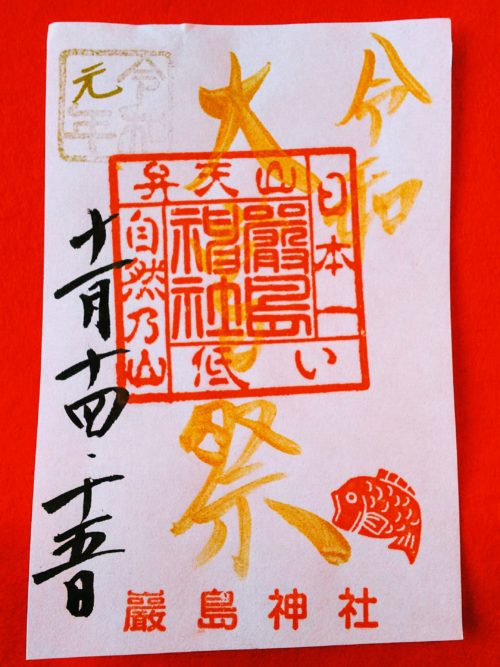 令和
大嘗祭
令和元年
日本一
低い
弁天山
自然乃山
嚴島
神社
十一月十四・十五日
巖島神社